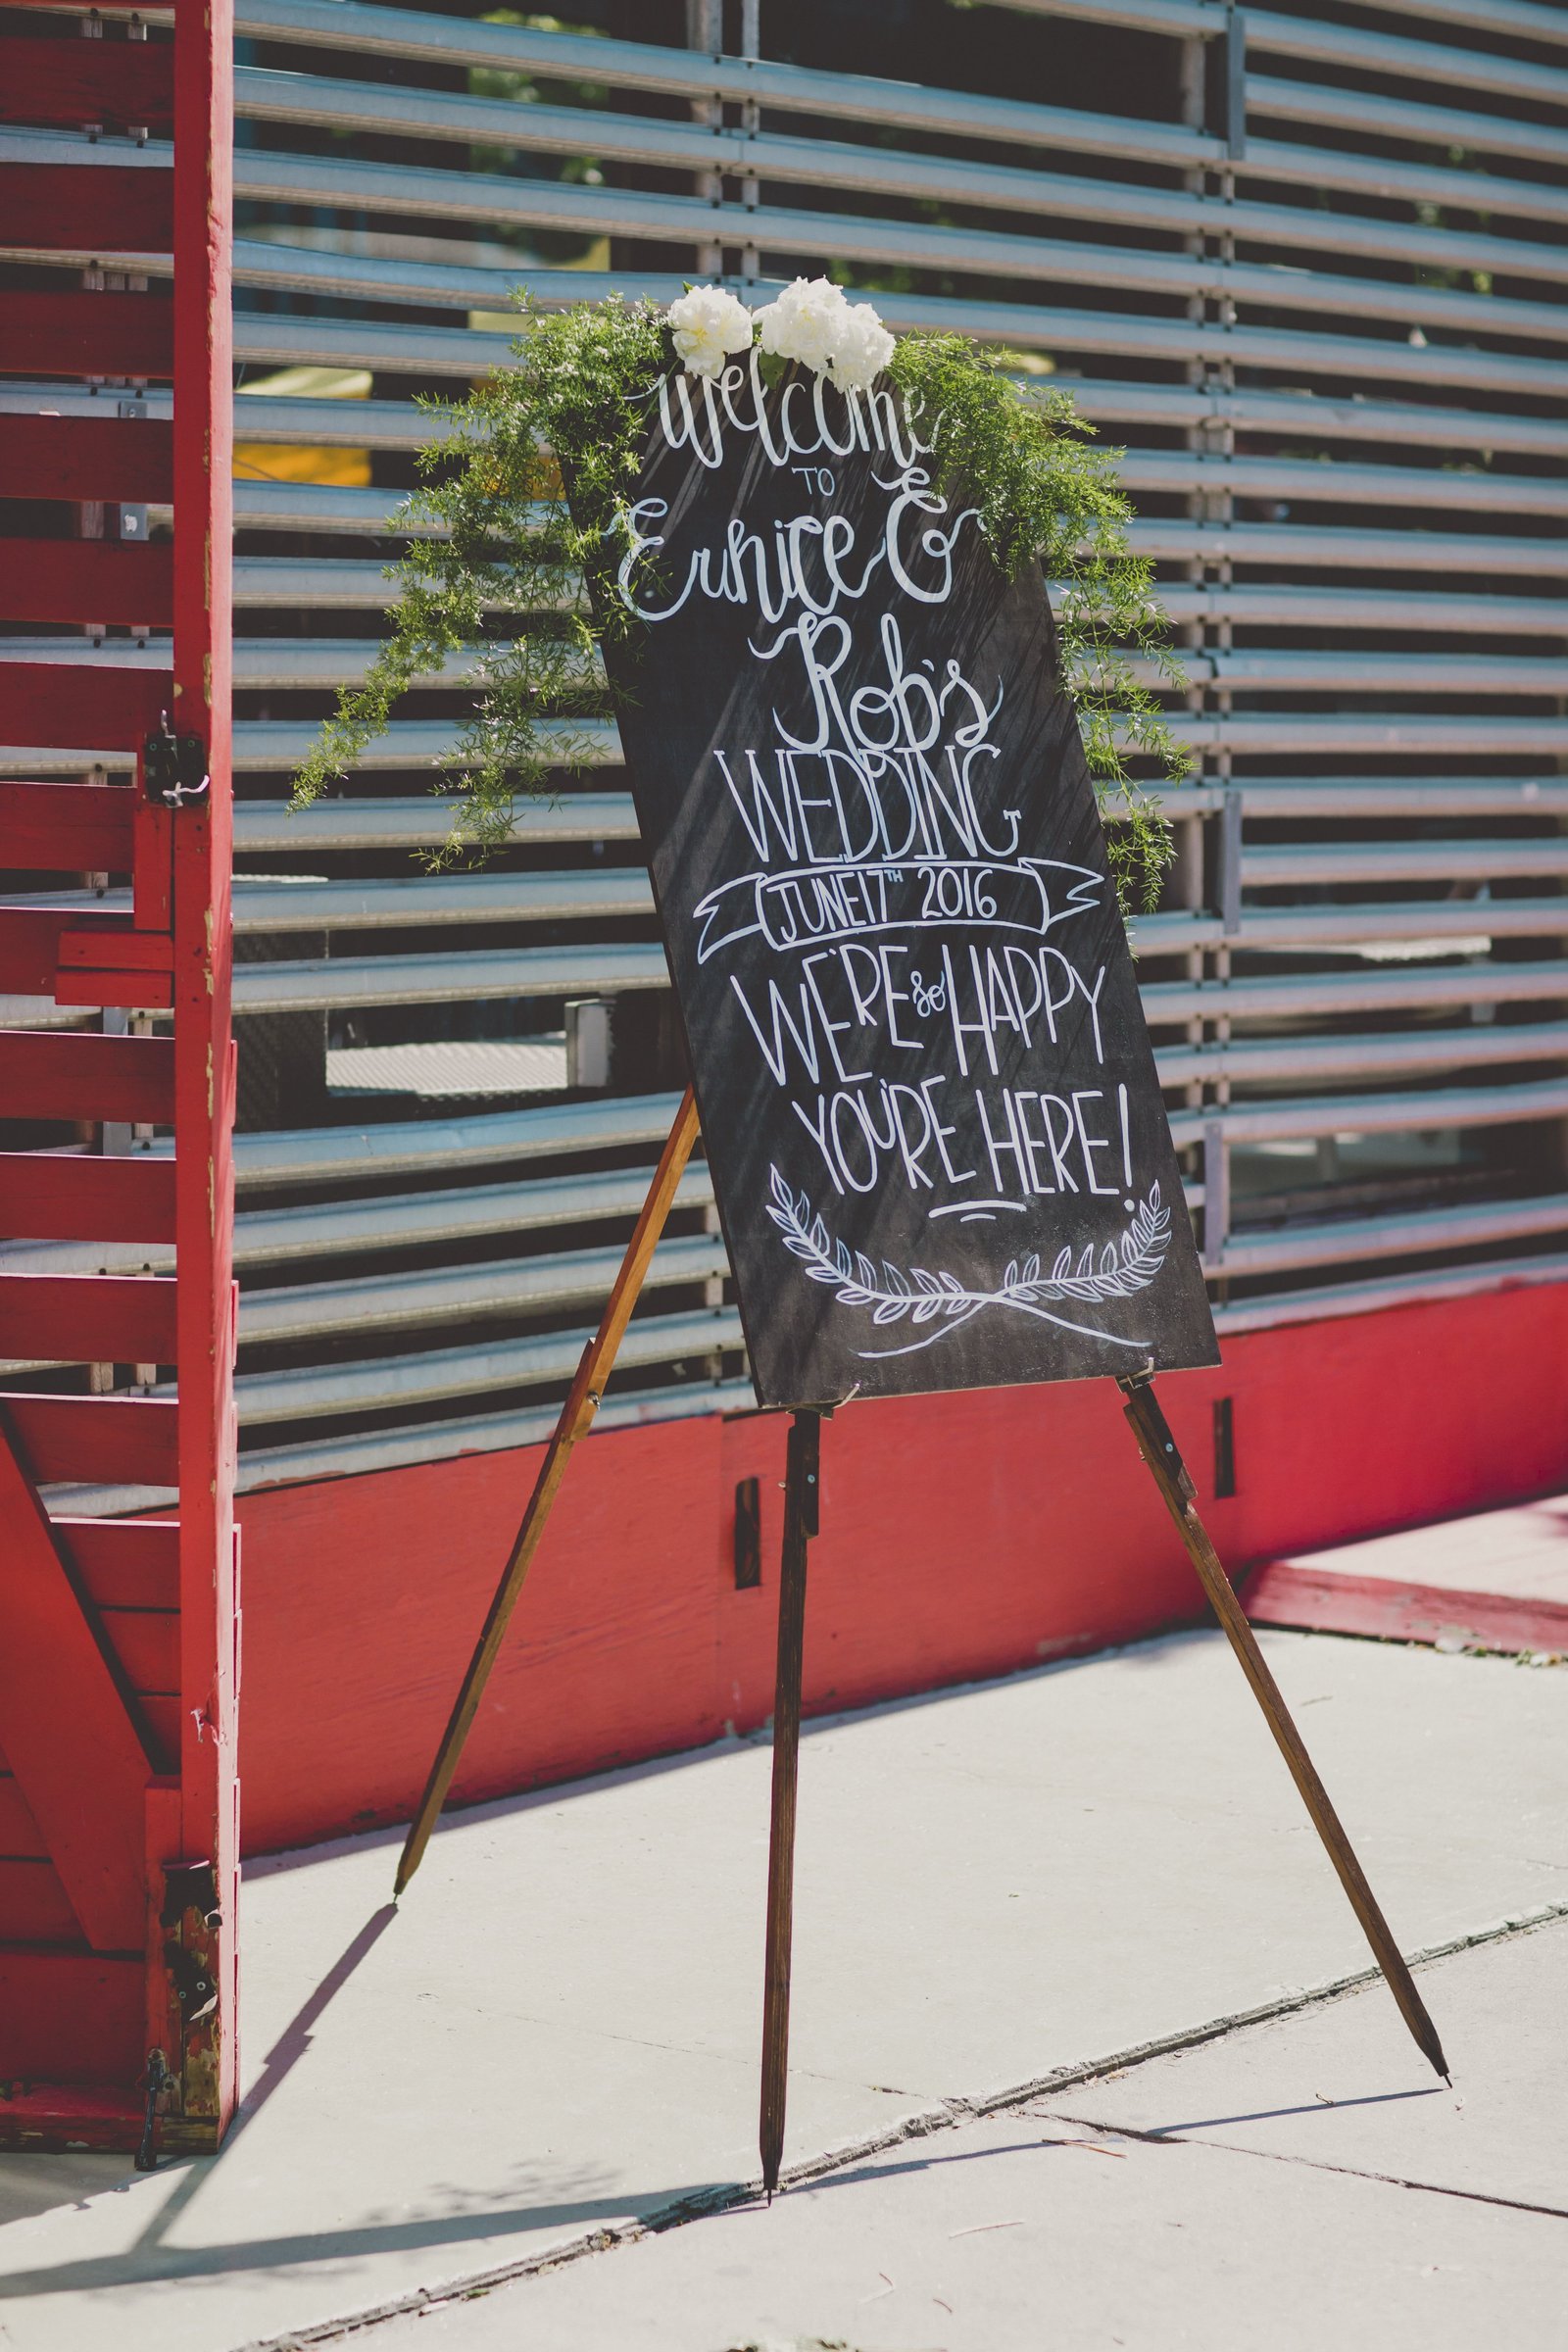 welcome
TO
Eunice &
Rob's
WEDDING
JUNE 17TH 2016
WE'RE so HAPPY
YOU'RE HERE!